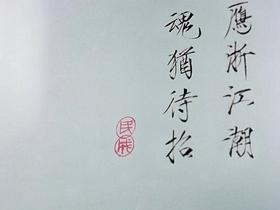 應浙江潮
魂猶待招
民威